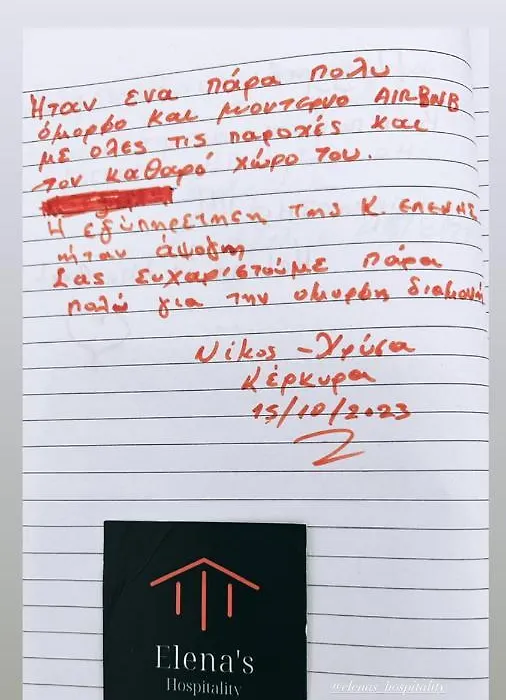 Ήταν ενα πάρα πολυ
όμορφο και μοντερνο AIRBNB
με ολες τις παροχές και
τον καθαρό χώρο του.
Η εξυπηρέτηση της κ. ελενης
ήταν άψογη
Σας ευχαριστούμε πάρα
πολύ για την όμορφη διαμονή
Νίκος - Χρύσα
Κέρκυρα
15/10/2023
Elena's
Hospitality
@elenas_hospitality